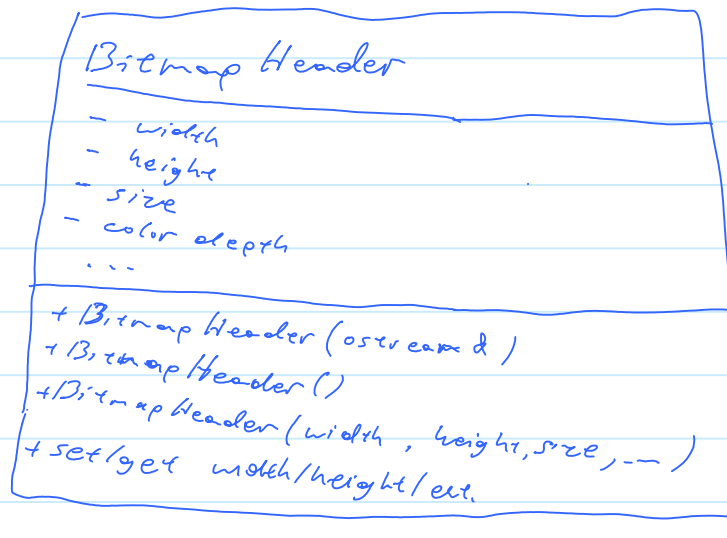 Bitmap Header
- width
- height
- size
- color depth
...
+ BitmapHeader(ostream &)
+ BitmapHeader()
+ BitmapHeader(width, height, size, ---)
+ set/get width/height/ect.